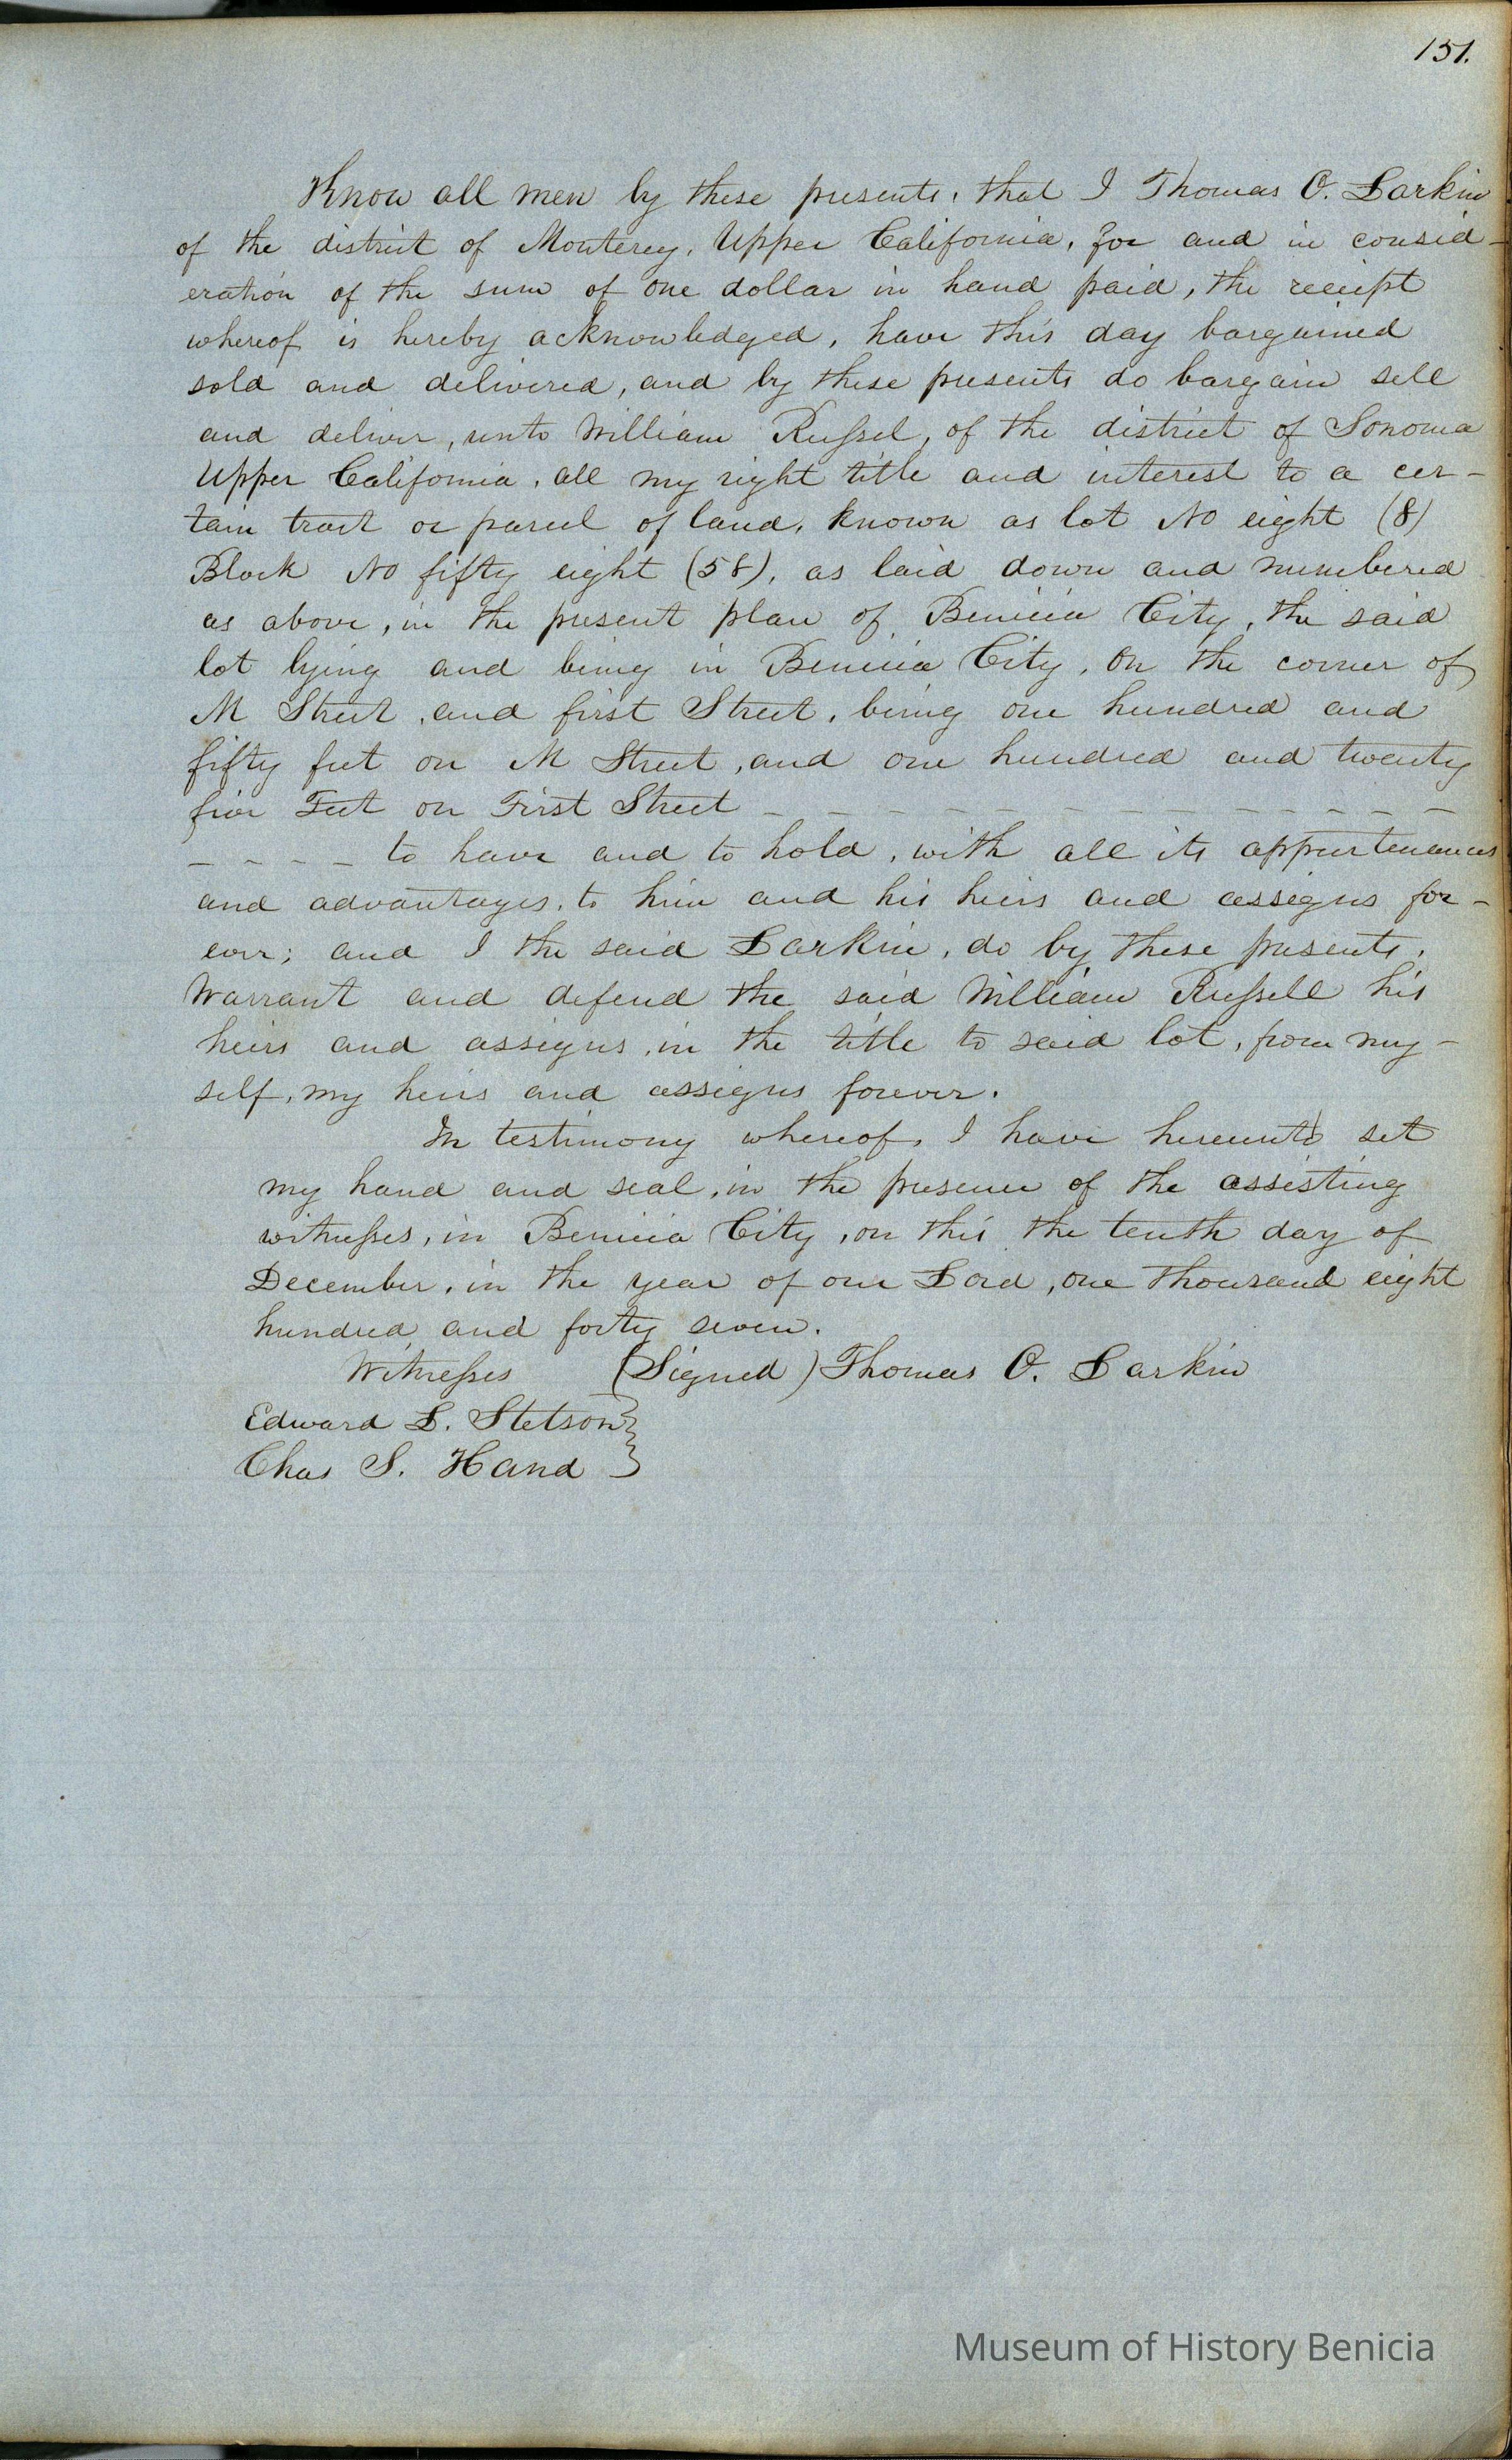 151.
Know all men by these presents, that I Thomas O. Larkin
of the district of Monterey, Upper California, for and in consid-
eration of the sum of one dollar in hand paid, the receipt
whereof is hereby acknowledged, have this day bargained
sold and delivered, and by these presents do bargain sell
and deliver, unto William Russel, of the district of Sonoma
Upper California, all my right title and interest to a cer-
tain tract or parcel of land, known as lot No eight (8)
Block No fifty eight (58), as laid down and numbered
as above, in the present plan of Benicia City, the said
lot lying and being in Benicia City, on the corner of
M Street, and first Street, being one hundred and
fifty feet on M Street, and one hundred and twenty
five Feet on First Street - - - - - - - - - - - -
- - - - to have and to hold, with all its appurtenances
and advantages, to him and his heirs and assigns for-
ever; and I the said Larkin, do by these presents,
Warrant and defend the said William Russell his
heirs and assigns, in the title to said lot, from my-
self, my heirs and assigns forever.
In testimony whereof, I have hereunto set
my hand and seal, in the presence of the assisting
witnesses, in Benicia City, on this the tenth day of
December, in the year of our Lord, one thousand eight
hundred and forty seven.
Witnesses (Signed) Thomas O. Larkin
Edward L. Stetson }
Chas S. Hand }
Museum of History Benicia